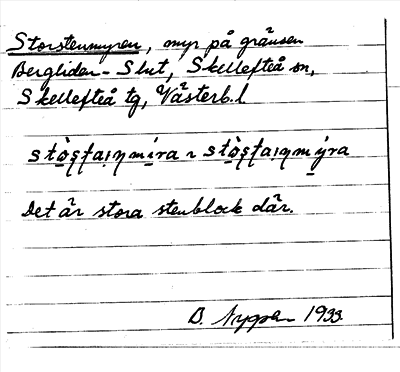 Storstenmyren, myr på gränsen
Bergliden - Slut, Skellefteå sn,
Skellefteå tg, Västerb. l
Det är stora stenblock där.
B. Nygren 1933.